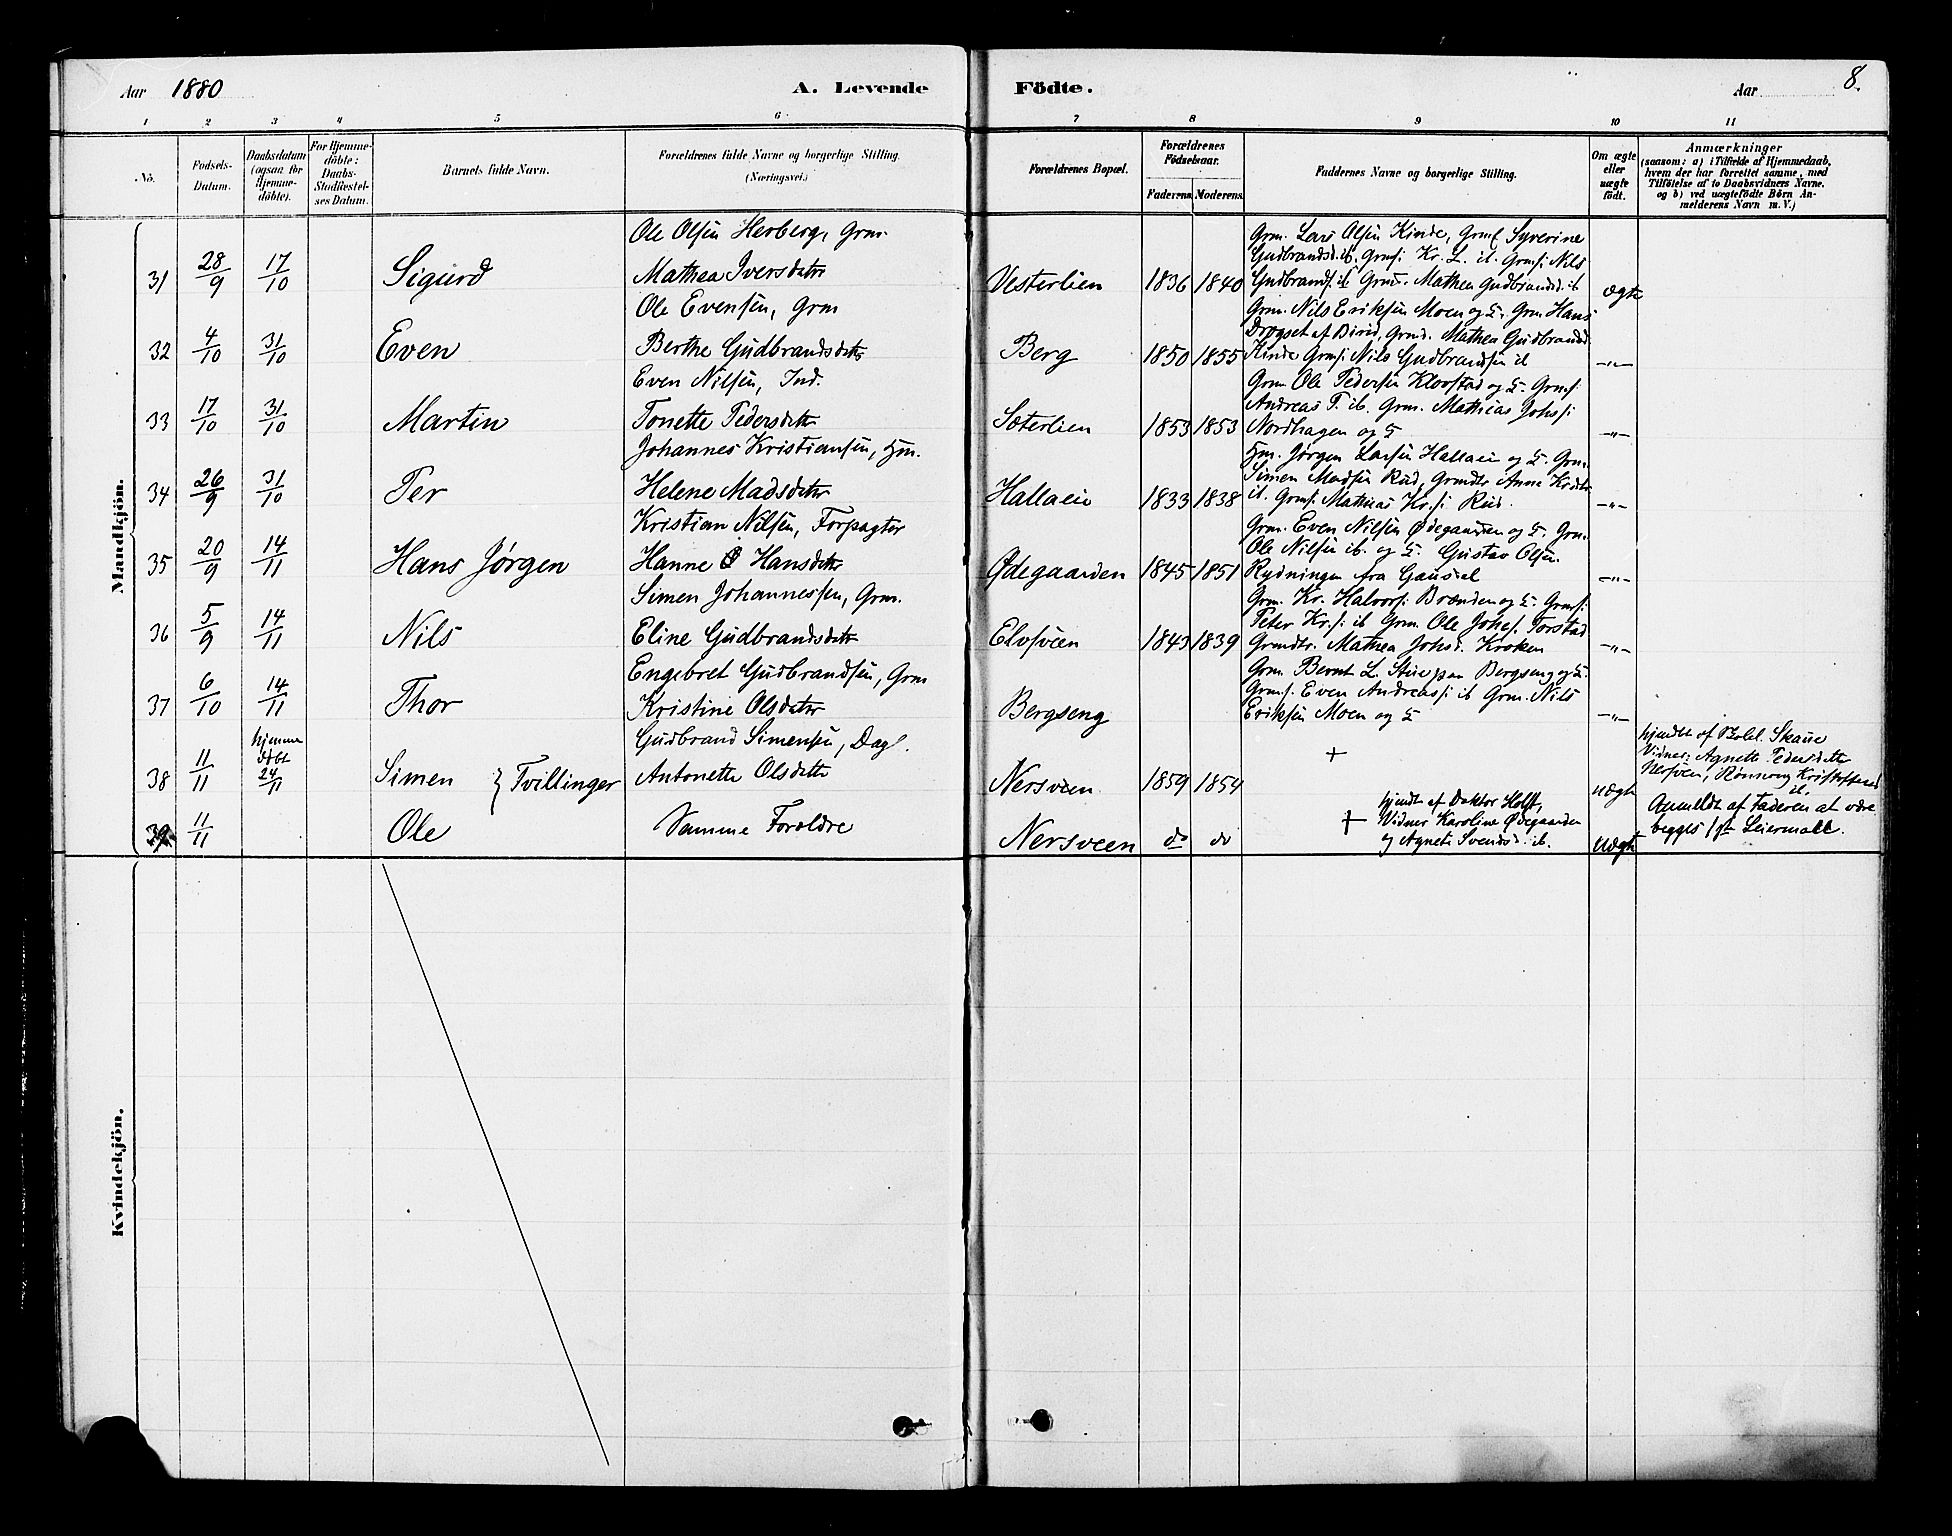 Aar 1880
A. Levende
Födte.
Aar
8.
1 2 3 4 5 6 7 8 9 10 11
No.
Fødsels-
Datum.
Daabsdatum
(ogsaa for
Hjemme-
döbte).
For Hjemme-
döbte:
Daabs-
Stadfæstel-
ses Datum.
Barnets fulde Navn.
Forældrenes fulde Navne og borgerlige Stilling.
(Næringsvei.)
Forældrenes Bopæl.
Forældrenes
Födselsaar.
Faderens. Moderens.
Faddernes Navne og borgerlige Stilling.
Om ægte
eller
uægte
födt.
Anmærkninger
(saasom: a) i Tilfælde af Hjemmedaab,
hvem der har forrettet samme, med
Tilföielse af to Daabsvidners Navne,
og b) ved uægtefödte Börn An-
melderens Navn m. V.)
Mandkjön.
31 28/9 17/10 Sigurd
Ole Olsen Herberg, Grm.
Mathea Iversdatr
Vesterlien 1836 1840
Grm. Lars Olsen Kinde, Grmf Syverine
Gudbrandsd. ib. Grmf: Kr. L. ib. Grmf: Nils
Gudbrandf. ib Mathea Gudbrandsd. ib
ægte
32 4/10 31/10 Even
Ole Evensen, Grm
Berthe Gudbrandsdatr
Berg 1850 1855
Grm. Nils Eriksen Moen og Grm Hans
Drogset af Birid, Mathea Gudbrandsd.
Kinde Grmf: Nils Gudbrandsen ib
-"-
33 17/10 31/10 Martin
Even Nilsen, Ind.
Tonette Pedersdatr
Sæterlien 1853 1853
Grm Ole Pedersen Klovstad og Grmf:
Andreas P. ib. Grm. Mathias Johsf:
Nordhagen og
-"-
34 26/9 31/10 Per
Johannes Kristiansen, Hm.
Helene Madsdatr
Hallaeie 1833 1838
Hm. Jørgen Larsen Hallaeie og Grm.
Simen Madsen Rud, Anne
ib. Grmf: Mathias Kr.f: Rud.
-"-
35 20/9 14/11 Hans Jørgen
Kristian Nilsen, Forpagter
Hanne Hansdatr
Ødegaarden 1845 1851
Grm. Even Nilsen Ødegaarden og Grm.
Ole Nilsen ib. og Gustav Olsen
Rydningen fra Gausdal
-"-
36 5/9 14/11 Nils
Simen Johannessen, Grm.
Eline Gudbrandsdatr
Elvsveen 1843 1839
Grm. Kr. Halvorf: Brænden og Grmf:
Peter Kr.f: ib Grm. Ole Johsf. Torstad
Grmdtr. Mathea Johsd. Kroken
-"-
37 6/10 14/11 Thor
Engebret Gudbrandsen, Grm
Kristine Olsdatr
Bergseng
Grm. Bernt L. Stue paa Bergseng og
Grmf. Even Andreasf: ib Grm. Nils
Eriksen Moen og
-"-
38 11/11 hjemme
døbt
24/11 Simen } Tvillinger
Gudbrand Simensen, Dagl.
Antonette Olsdatr
Nersveen 1859 1854 +
uægte
hjemdbt af Skaue
Vidner: Agnette Pedersdatter
Nersveen, Rønnaug Kristoffersd
ib.
39 11/11 Ole
Samme Forældre
Nersveen do do
+ hjemdbt af Doktor Holst,
Vidner Karoline Ødegaarden
og Agnete Svendsd. ib.
uægte
Anmeldt af Faderen at være
begges 1ste Leiermaal.
Kvindekjön.